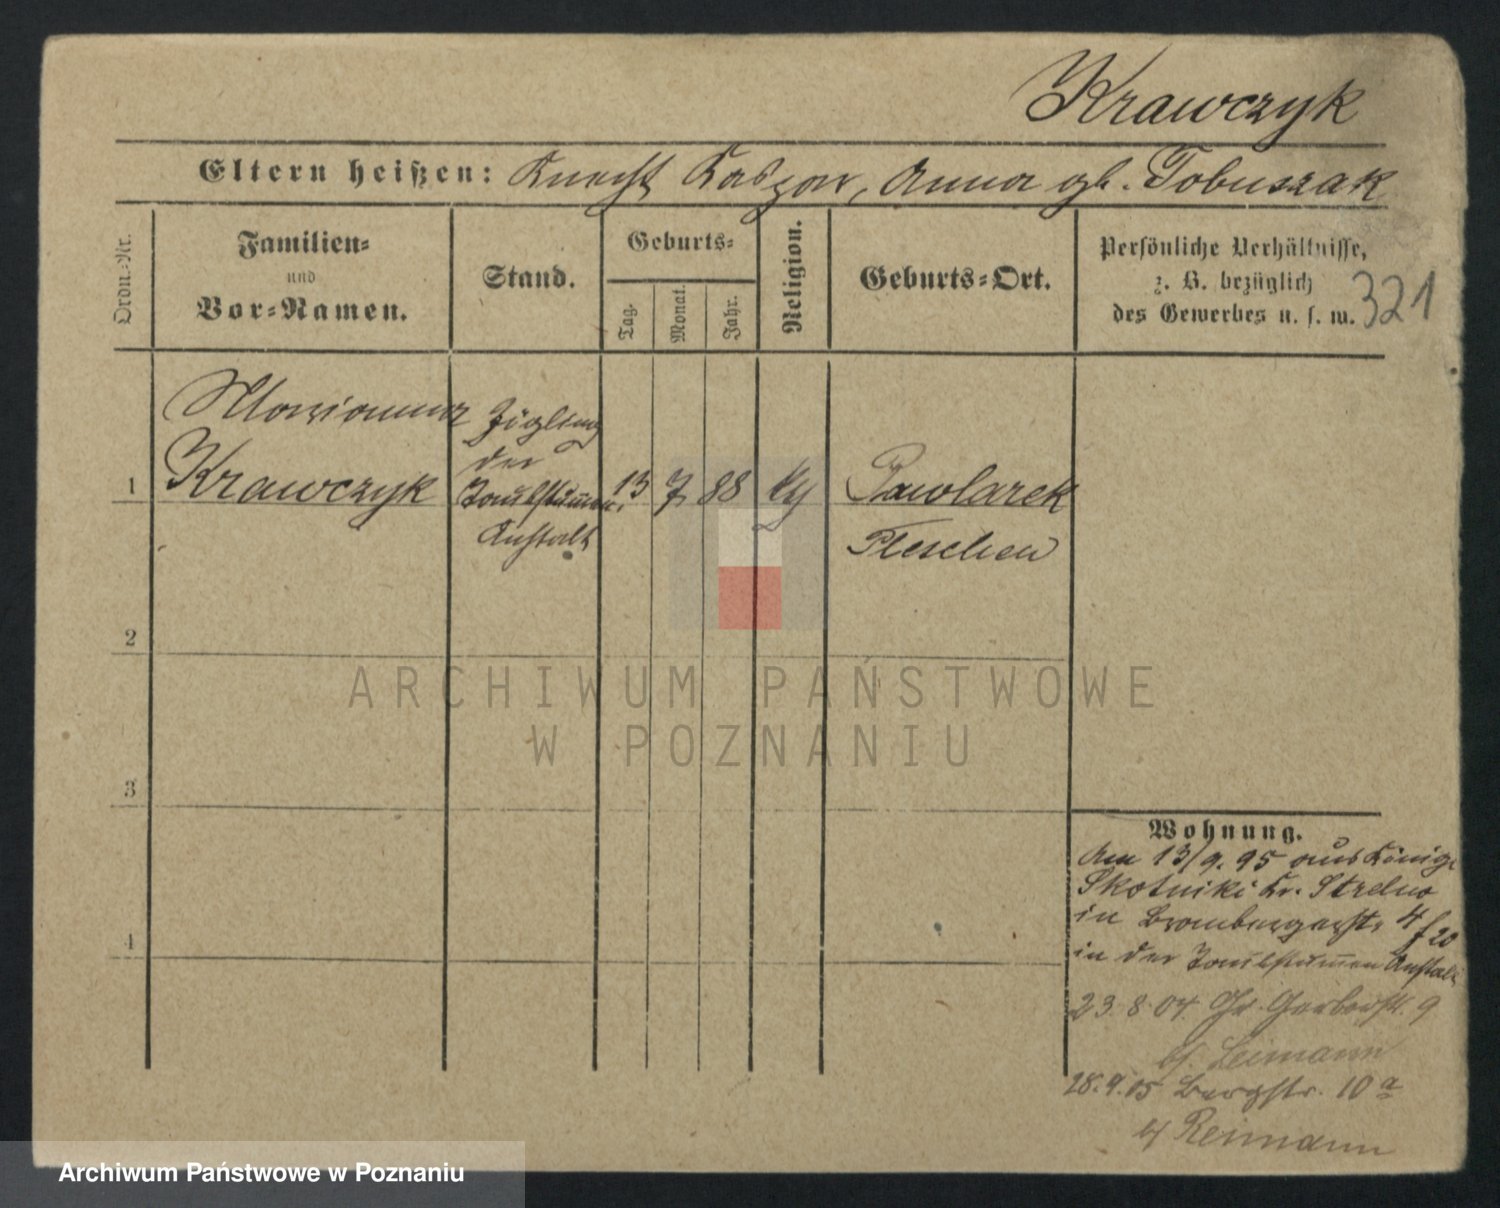 Krawczyk
Eltern heißen: Knecht Kasper, Anna gb. Tobuszak
Ordn.-Nr.
Familien-
und
Vor-Namen.
Stand.
Geburts-
Tag.
Monat.
Jahr.
Religion.
Geburts-Ort.
Persönliche Verhältnisse,
z. B. bezüglich
des Gewerbes u. s. w.
321
1
Marianna
Krawczyk
Zögling
der
Taubstummen
Anstalt
13
7
88
Pawlarek
Pleschen
2
3
4
Wohnung.
Am 13/9. 95 aus Königl
Skotniki Kr. Strelno
in Brombergerstr 4 f 20
in der Taubstummen Anstalt
23.8.04 Gr. Gerberstr. 9
28.9.05 Bergstr. 10 a
Reimann
ARCHIWUM PAŃSTWOWE
W POZNANIU
Archiwum Państwowe w Poznaniu